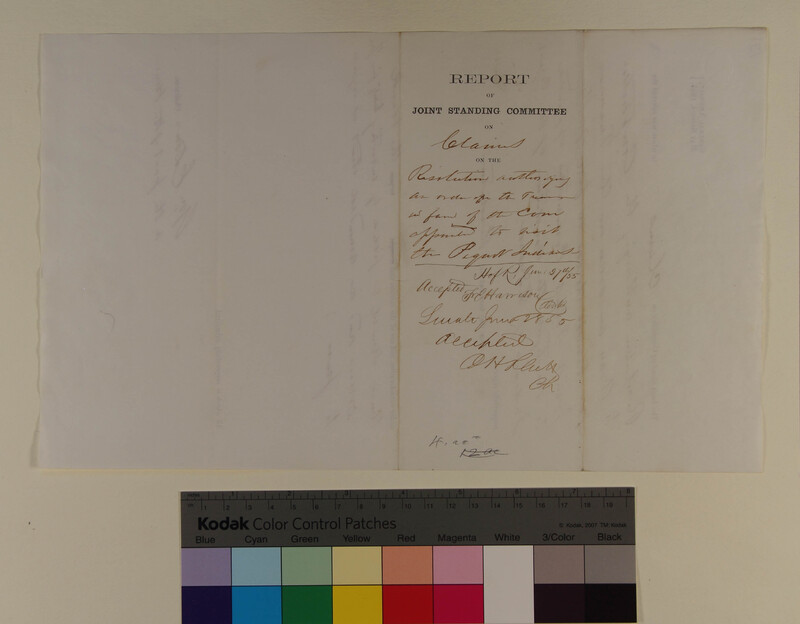 REPORT
OF
JOINT STANDING COMMITTEE
ON
Claims
ON THE
Resolution authorizing
an order on the Treas
in fav of the Com
appointed to visit
the Pequot Indians
H of R. Jun. 
Accepted Harrison Clerk
Senate June
Accepted
O H Platt
Ck
H. 20
Kodak Color Control Patches
© Kodak, 2007 TM: Kodak
Blue Cyan Green Yellow Red Magenta White 3/Color Black